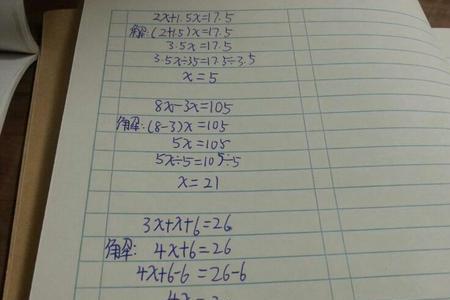 2x+1.5x=17.5
解:(2+1.5)x=17.5
3.5x=17.5
3.5x÷3.5=17.5÷3.5
x=5
8x-3x=105
解:(8-3)x=105
5x=105
5x÷5=105÷5
x=21
3x+x+6=26
解: 4x+6=26
4x+6-6=26-6
4x=